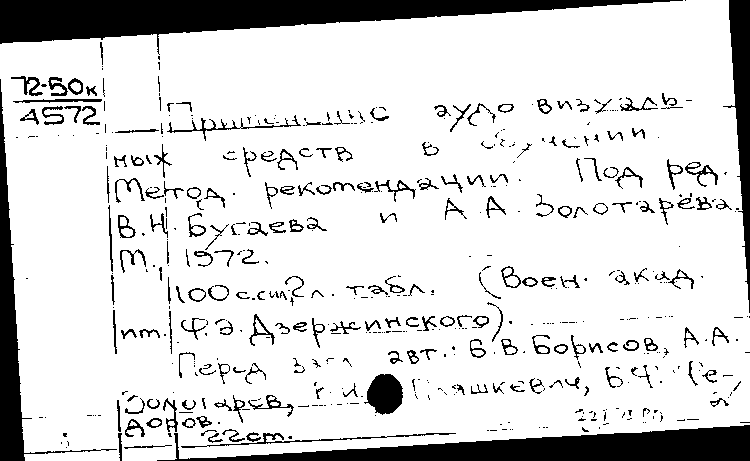 72-50к
4572
Применение аудо визуаль-
ных средств в обучении.
Метод. рекомендации. Под ред.
В.Н. Бугаева и А.А. Золотарёва.
М., 1972.
100 с. 2 л. табл. (Воен. акад.
им. Ф.Э. Дзержинского).
Перед загл. авт.: Б.В. Борисов, А.А.
Золотарев, Пляшкевич, Б.Ф. Фе-
доров.
22 cm.